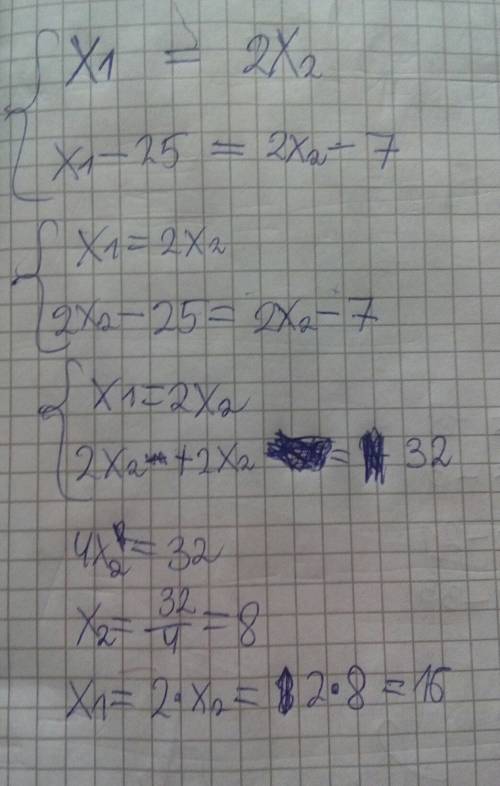 x1 = 2x2
x1 - 25 = 2x2 - 7
x1 = 2x2
2x2 - 25 = 2x2 - 7
x1 = 2x2
2x2 + 2x2 = 32
4x2 = 32
x2 = 32/4 = 8
x1 = 2·x2 = 2·8 = 16